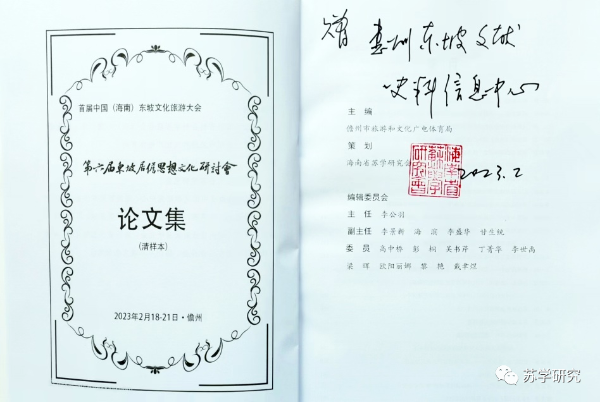 首届中国（海南）东坡文化旅游大会
第六届东坡居儋思想文化研讨會
论文集
（清样本）
2023年2月18-21日·儋州
赠 惠州东坡文献
史料信息中心
主 编
儋州市旅游和文化广电体育局
策 划
海南省苏学研究会
2023.2
编辑委员会
主 任 李公羽
副主任 李景新 海 滨 李盛华 甘生统
委 员 高中桥 彭 桐 吴书芹 丁菁华 李世禹
梁 晖 欧阳丽娜 黎 艳 戴聿煊
苏学研究